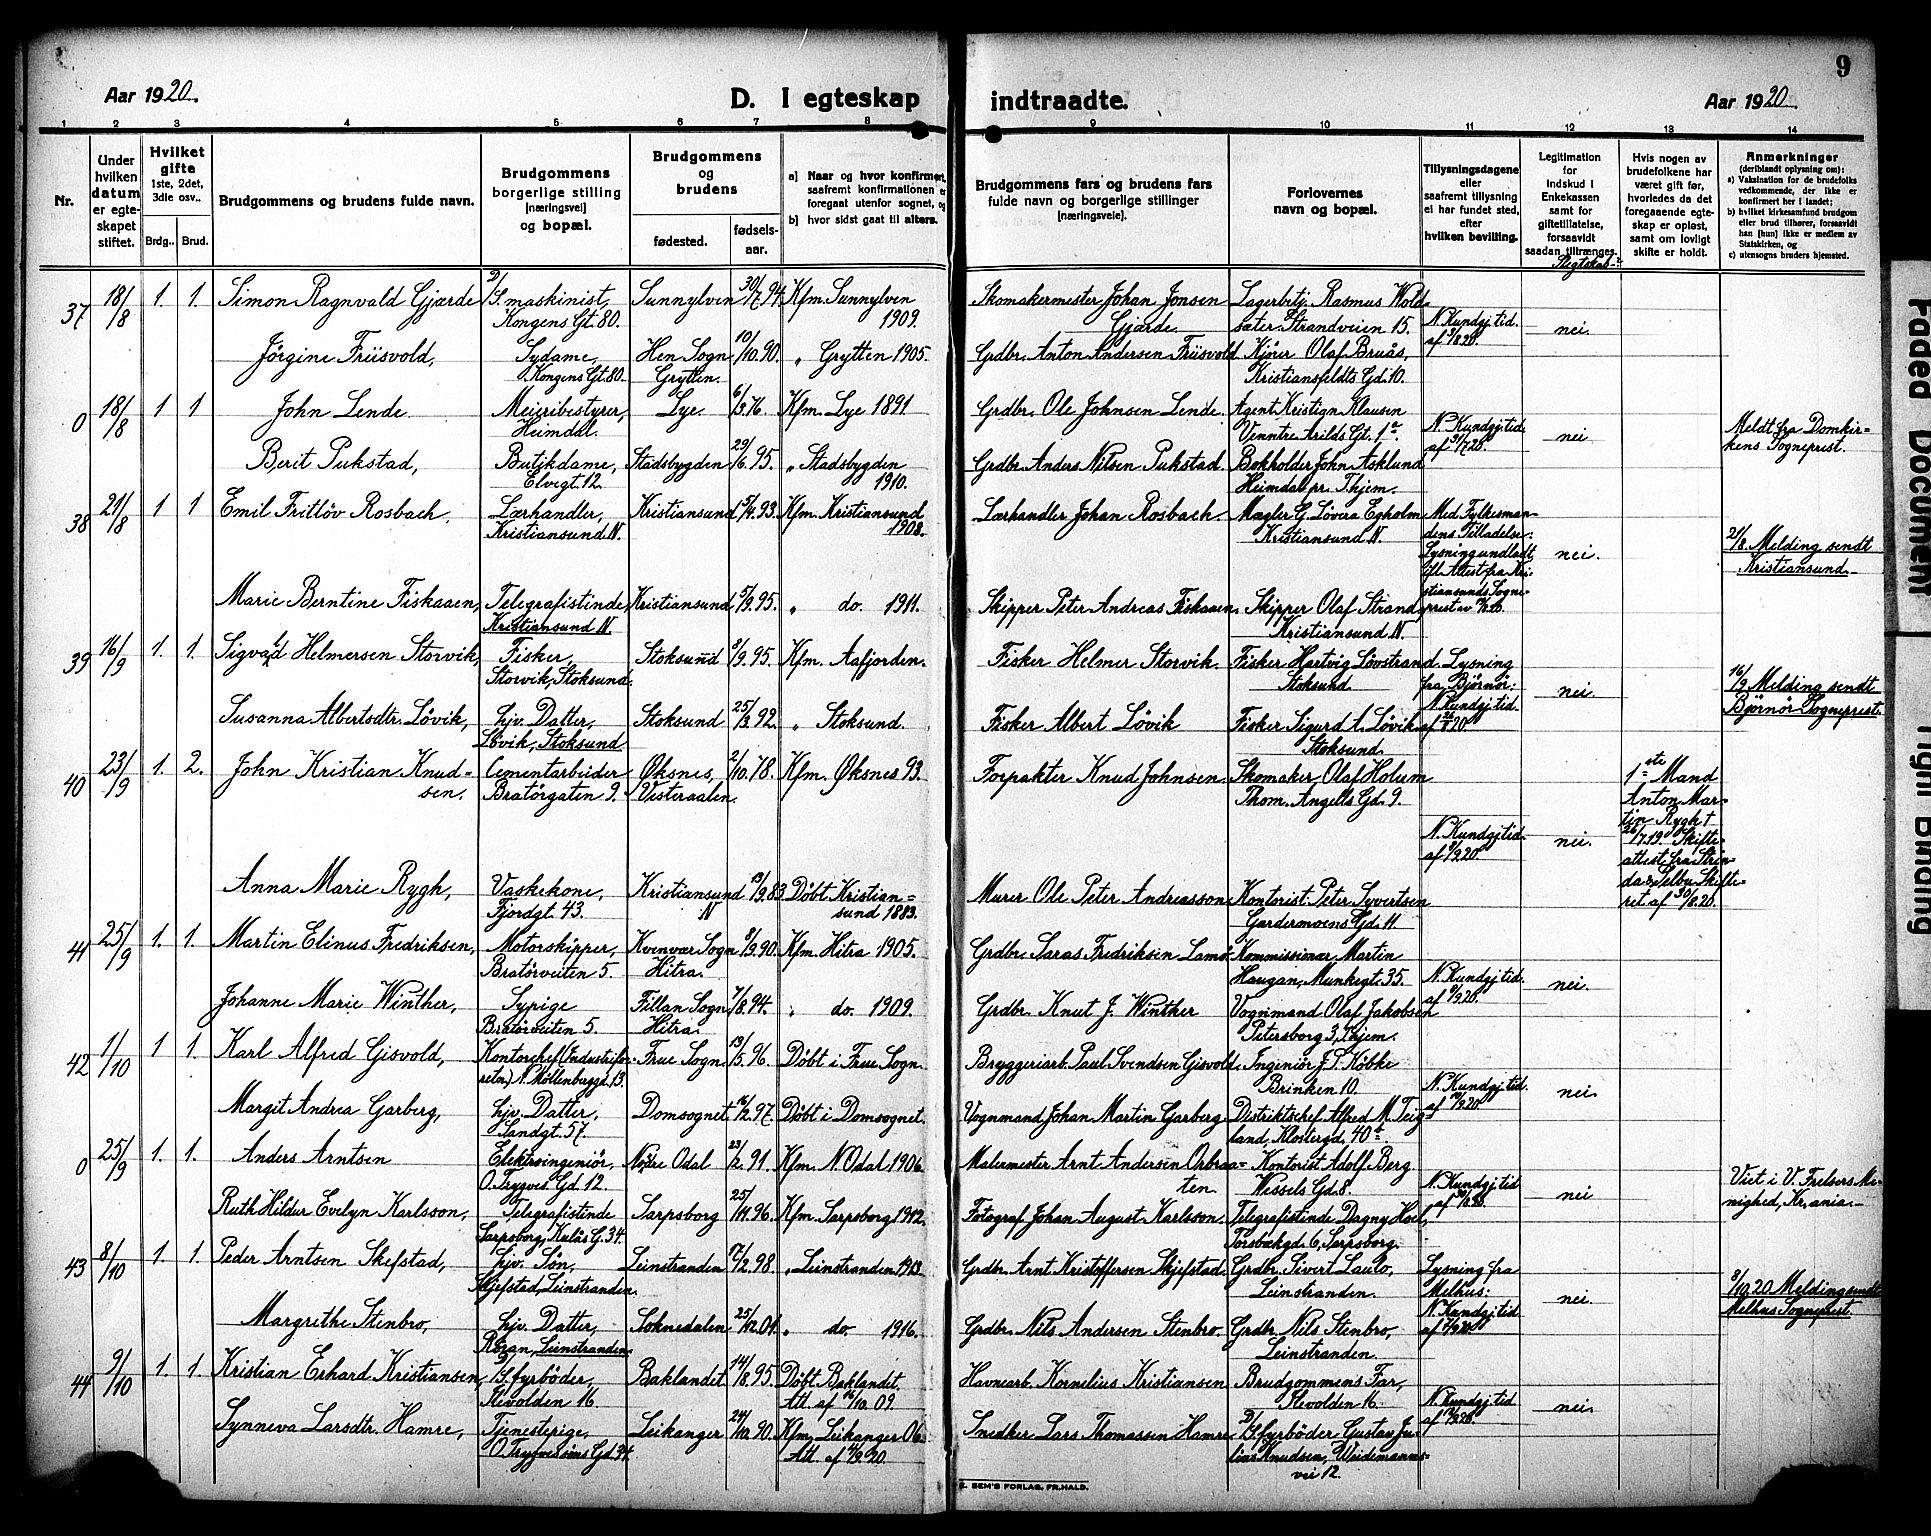 Aar 1920.
D. I egteskap
indtraadte.
Aar 1920
9
1 2 3 4 5 6 7 8
9 10 11 12 13 14
Nr.
Under hvilken datum er egteskapet stiftet.
Hvilket gifte 1ste, 2det, 3die osv..
Brdg.. Brud.
Brudgommens og brudens fulde navn.
Brudgommens borgerlige stilling [næringsvei] og bopæl.
Brudgommens og brudens
fødested.
fødselsaar.
a) Naar og hvor konfirmert,
saafremt konfirmationen er
foregaat utenfor sognet, og
b) hvor sidst gaat til alters.
Brudgommens fars og brudens fars
fulde navn og borgerlige stillinger
[næringsveie].
Forlovernes
navn og bopæl.
Tillysningsdagene
eller
saafremt tillysning
ei har fundet sted,
efter
hvilken bevilling.
Legitimation
for
Indskud i
Enkekassen
samt for
giftetillatelse,
forsaavidt
saadan tiltrænges.
Slegtskab
Hvis nogen av
brudefolkene har
været gift før,
hvorledes da det
foregaaende egteskap er opløst,
samt om lovligt
skifte er holdt.
Anmerkninger
(deriblandt oplysning om):
a) Vaksination for de brudefolks
vedkommende, der ikke er
konfirmert her i landet;
b) hvilket kirkesamfund brudgom
eller brud tilhører, forsaavidt
han [hun] ikke er medlem av
Statskirken, og
c) utensogns bruders hjemsted.
37 18/8 1. 1. Simon Ragnvald Gjærde D/S. maskinist, Kongens Gt. 80. Sunnylven 30/7.94. Kfm. Sunnylven 1909. Skomakermester Johan Jonsen Gjærde Lagerbetj. Rasmus Wold sæter Strandveien 15. N. Kundgj. tid. af 3/8.20. nei.
Jörgine Friisvold, Sydame, Kongens Gt. 80. Hen Sogn Grytten. 10/10.90. " Grytten 1905. Grdbr. Anton Andersen Friisvold Kjörer Olaf Bruås, Kristiansfeldts Gd. 10.
0 18/8 1 1 John Lende Meieribestyrer, Heimdal. Lye. 6/3.76. Kfm. Lye 1891 Grdbr. Ole Johnsen Lende. Agent Kristian Klausen Venntre Arilds Gt. 1a. N. Kundgj. tid. af 31/7 20. nei Meldt fra Domkirkens Sogneprest.
Berit Pukstad, Butikdame, Elvegt. 12. Stadsbygden 29/6.95. " Stadsbygden 1910. Grdbr. Anders Nilsen Pukstad. Bokholder John Asklund Heimdal pr. Thjem.
38 21/8 1 1 Emil Fritlöv Rosbach. Lærhandler, Kristiansund N. Kristiansund 15/4.93. Kfm. Kristiansund 1908. Lærhandler Johan Rosbach. Mægler G. Lövera Egholm Kristiansund N. Med Fylkesmandens Tilladelse: Lysning undladt, ifl. Attest fra Kristiansunds Sogneprest av /8.20. nei. 21/8. Melding sendt Kristiansund.
Marie Berntine Fiskaaen, Telegrafistinde, Kristiansund N. Kristiansund 5/9.95. " do. 1911. Skipper Peter Andreas Fiskaaen. Skipper Olaf Strand, Kristiansund N.
39 16/9 1. 1. Sigvald Helmersen Storvik, Fisker, Storvik, Stoksund. Stoksund /9.95. Kfm. Aafjorden. Fisker Helmer Storvik. Fisker Hartvig Lövstrand Stoksund. Lysning fra Björnör: N. Kundgj. tid. af /8 20. nei. 16/9 Melding sendt Björnör Sogneprest.
Susanna Albertsdtr. Lövik, hjv. Datter, Lövik, Stoksund Stoksund 25/3.92. " Stoksund. Fisker Albert Lövik Fisker Sigurd A. Lövik Stoksund.
40 23/9 1. 2. John Kristian Knudsen. Cementarbeider Bratörgaten 9. Øksnes, Vesteraalen. 2/10.78. Kfm. Øksnes 93. Forpakter Knud Johnsen. Skomaker Olaf Holum Thom. Angells Gd. 9. N. Kundgj. tid af /9.20. nei. 1ste Mand Anton Martin Rygh † 26/7.19 Skifteattest fra Strinda & Selbu Skifteret af 30/8.20.
Anna Marie Rygh, Vaskekone, Fjordgt. 43. Kristiansund N 13/9.83 Döbt Kristiansund 1883. Murer Ole Peter Andreasson Kontorist Peter Syvertsen Gardermoens Gd. 11.
41 25/9 1. 1. Martin Elinus Fredriksen, Motorskipper, Bratörveiten 5. Kvenvær Sogn Hitra. 8/9.90. Kfm Hitra 1905. Grdbr. Saras Fredriksen Lamö Kommissionær Martin Haugan, Munkegt. 35. N. Kundgj. tid. af /9.20. nei.
Johanne Marie Winther, Sypige Bratörveiten 5. Fillan Sogn Hitra. 7/8.94. " do. 1909. Grdbr. Knut J. Winther Vognmand Olaf Jakobsen Petersborg 3, Thjem.
42 1/10 1 1. Karl Alfred Gisvold, Kontorchef (Industriforretn.) N. Möllenberggd. 13. Frue Sogn. 13/5.96. Döbt i Frue Sogn. Bryggeriarb. Paul Svendsen Gisvold. Ingeniör J. P. Köbke Brinken 10. N. Kundgj. tid. af /9.20. nei.
Margit Andrea Garberg, hjv. Datter, Sandgt. 57. Domsognet 16/2.97. Döbt i Domsognet. Vognmand Johan Martin Garberg. Distriktschef Alfred M. Teigland, Klostergd. 40a.
0 25/9 1. 1. Anders Arntsen Elektroingeniör, O. Trygves Gd. 12. Nordre Odal 23/2.91. Kfm. N. Odal 1906. Malermester Arnt Andersen Orbraaten. Kontorist Adolf Berg Wessels Gd. 8. N. Kundgj. tid af 30/8.20. nei Viet i V. Frelsers Menighed, Kr.ania.
Ruth Hildur Evelyn Karlsson, Telegrafistinde Sarpsborg, Kulås G. 34. Sarpsborg 25/11.96. Kfm. Sarpsborg 1912. Fotograf Johan August Karlsson. Telegrafistinde Dagny Hoel, Torsbækgd. 6, Sarpsborg.
43 8/10 1. 1. Peder Arntsen Skefstad, hjv. Sön, Skjefstad, Leinstranden. Leinstranden 7/2.98. " Leinstranden 1913. Grdbr. Arnt Kristoffersen Skjefstad. Grdbr. Sivert Laulo, Leinstranden. Lysning fra Melhus: N. Kundgj. tid af /9.20. nei. 8/10.20. Melding sendt Melhus Sogneprest.
Margrethe Stenbro, hjv. Datter, Leinstranden. Soknedalen 25/12.01. " do. 1916. Grdbr. Nils Andersen Stenbro. Grdbr. Nils Stenbro, Leinstranden.
44 9/10 1. 1. Kristian Erhard Kristiansen, D/S. fyrböder, Stevolden 16 Baklandet 14/8.95. Döbt Baklandet. Att. af 16/10.09. Havnearb. Kornelius Kristiansen Brudgommens Far, Stevolden 16. N. Kundgj. tid af /9.20. nei.
Synneva Larsdtr. Hamre, Tjenestepige, O. Tryggvesöns Gd. 34. Leikanger 24/10.90. Kfm. Leikanger 06. Att. af /9.20. Snedker Lars Thomassen Hamre D/S. fyrböder Gustav Julius Knudsen, Weidemannsvei 12.
E. SEM'S FORLAG, FR.HALD.
Faded Document
Tight Binding